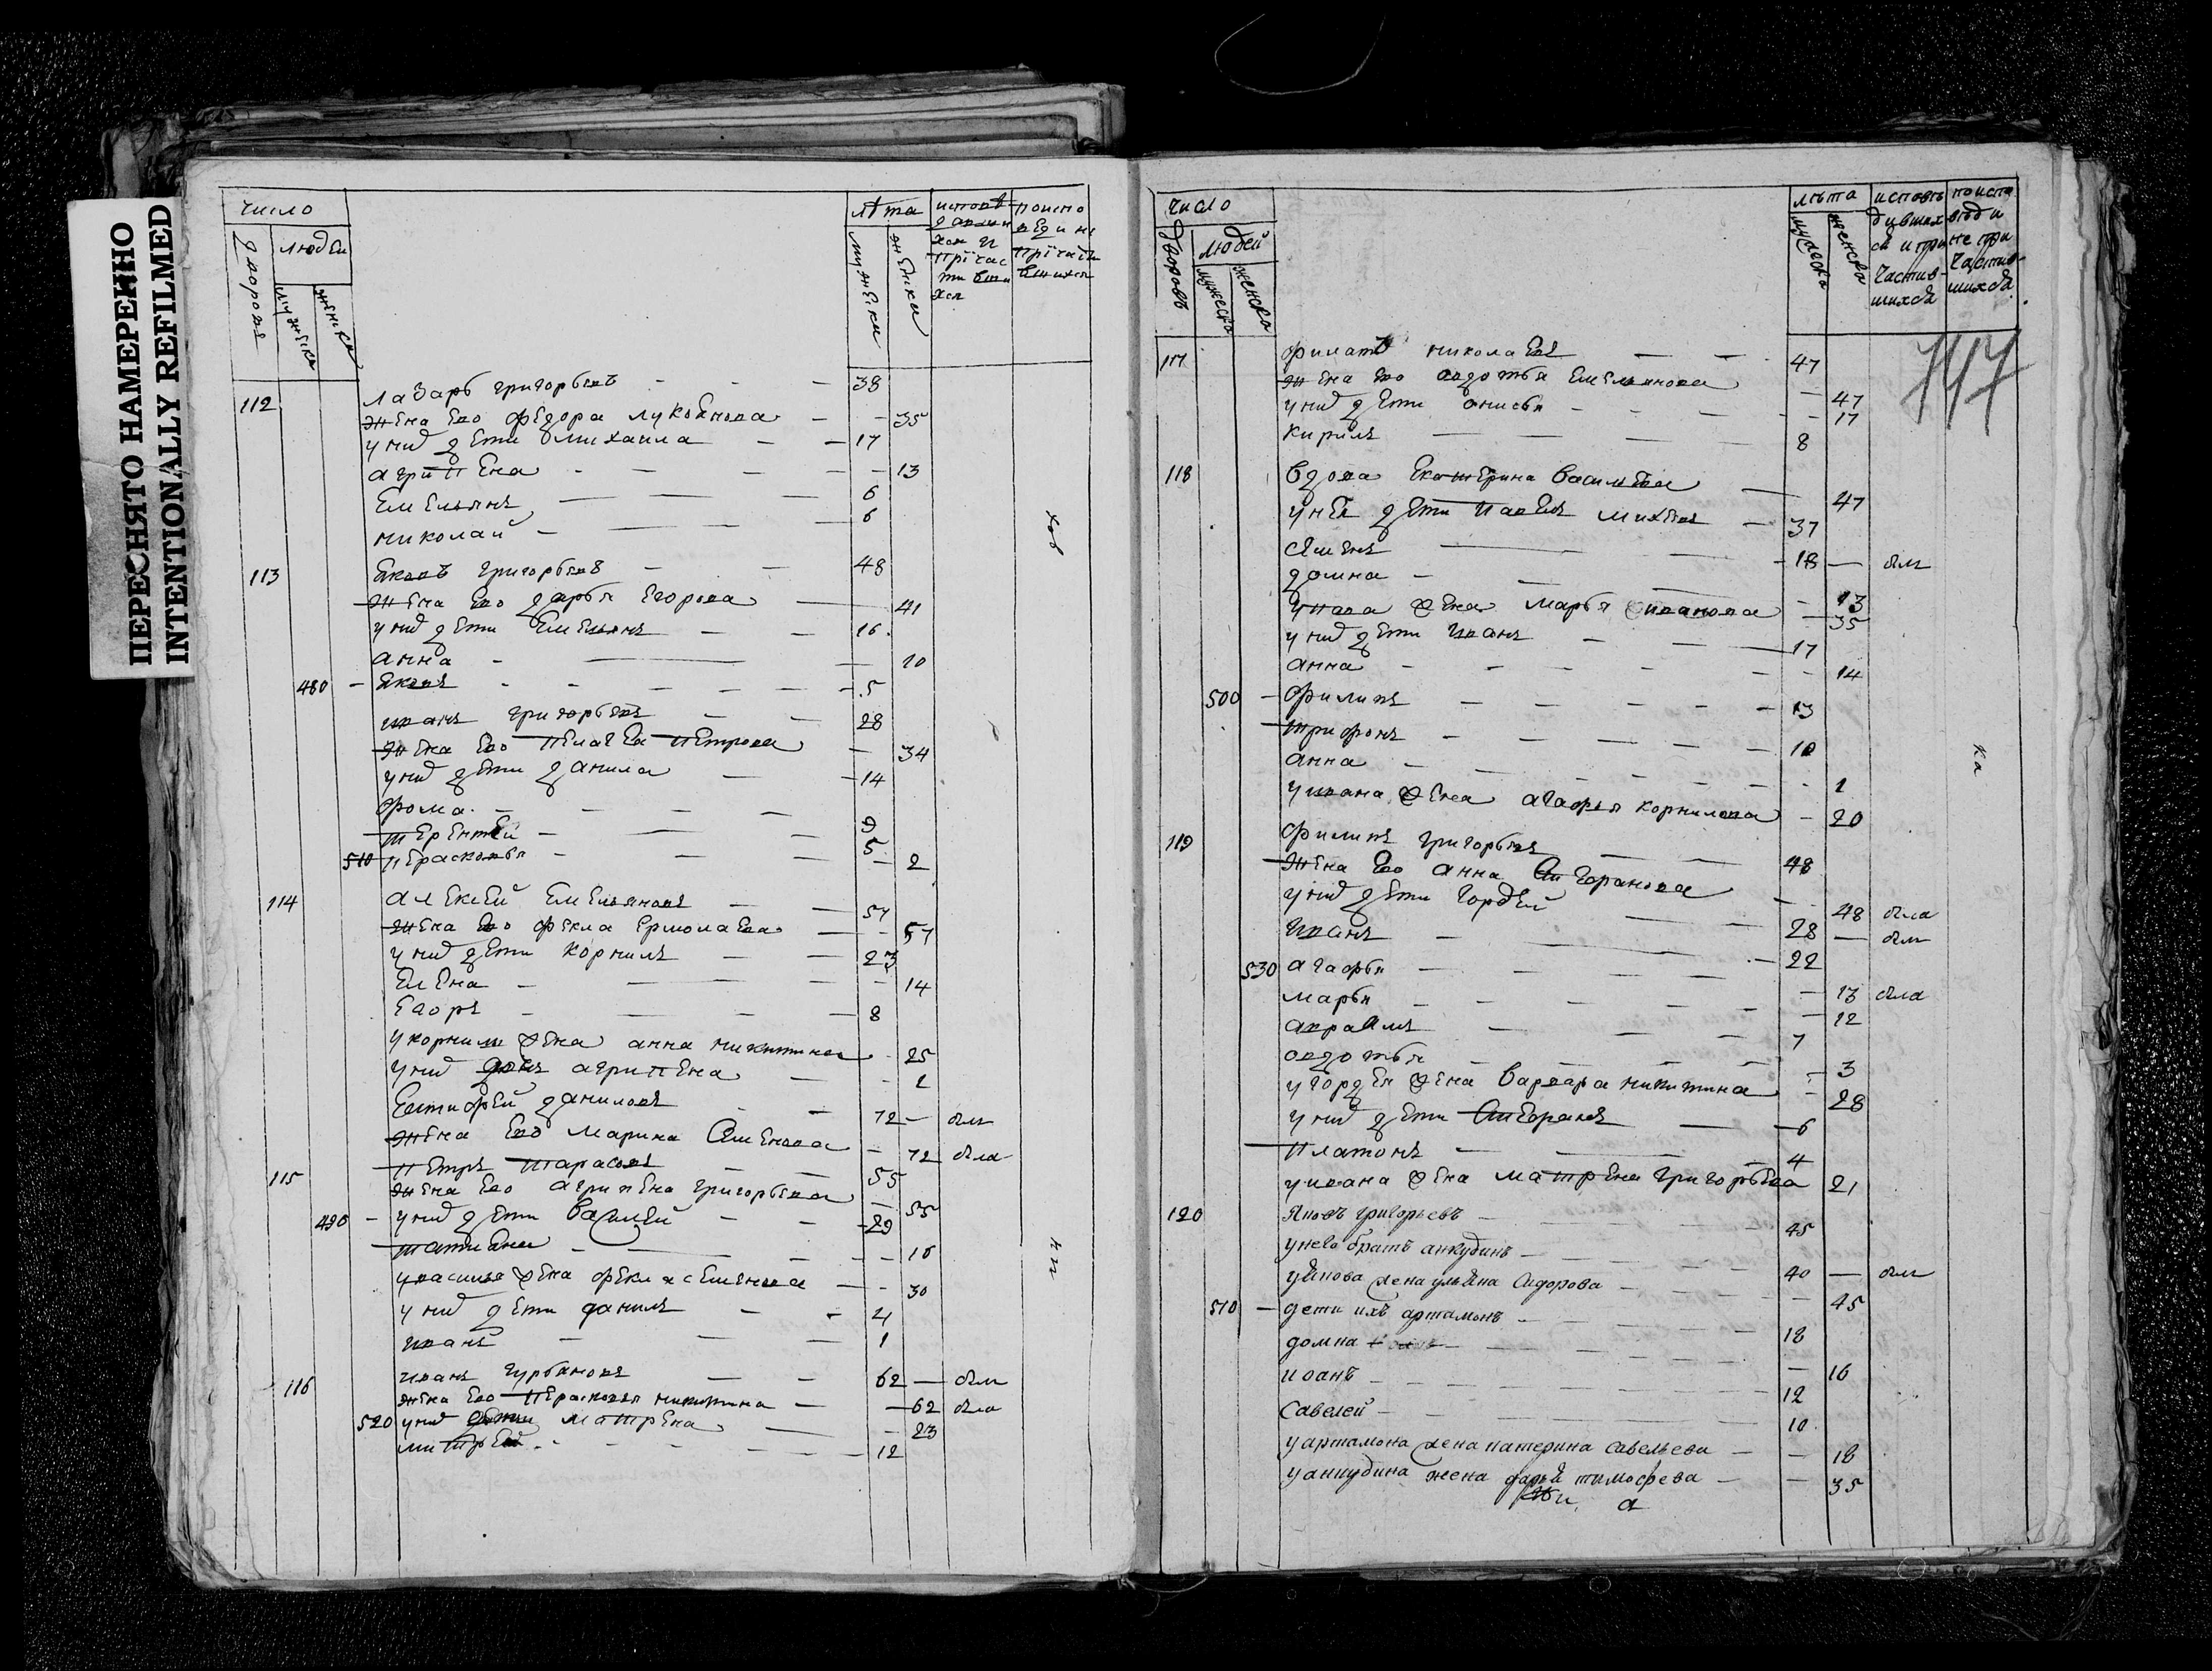 ПЕРЕСНЯТО НАМЕРЕННО
INTENTIONALLY REFILMED
число
дворовъ
людеи
мужеска
женска
лѣта
мужески
женски
исповѣ
давши
хся и
прїчас
тивши
хся
поиспо
веди не
прїчасти
вшихся
112 лаѕарь григорьевъ - - - 38
жена ево федора лукоянова - - 35
у них дети михаила - - 17
агрипена - - - - 13
емельянъ - - - 6
николай - - - 6
113 яковъ григорьевъ - - 48
жена ево дарья егорова - 41
у них дети емельянъ - - 16
анна - - - 10
480 - яковъ - - - - - 5
иванъ григорьевъ - - 28
жена ево пелагея петрова - 34
у них дети данила - - 14
фома - - - - 9
терентей - - - 5
510 перасковья - - - 2
114 алексей емельяновъ - - 57
жена ево фекла ермолаева - - 57
у них дети корнилъ - - 23
елена - - - - 14
егоръ - - - 8
у корнила жена анна никитина - 25
у них дочь агрипена - - 1
евтифей даниловъ - - 72 - был
жена ево марина семенова - 72 была
115 петръ тарасовъ - - 55
жена ево агрипена григорьева - 55
490 - у них дети василей - - 29
татиана - - - - 16
у василья жена фекла семенова - - 30
у них дети данилъ - - 4
иванъ - - - 1
116 иванъ гурьяновъ - - 62 - был
жена ево перасковья никитина - - 62 была
520 у них дети матрена - - 23
митрей - - - - - 12
хов
кп
число
дворовъ
людей
мужеска
женска
лѣта
мужеска
женска
исповѣ
давших
ся и при
частив-
шихся
поиспо
вѣди
не при
частив-
шихся
717
117 филатъ николаевъ - - 47
жена ево авдотья емельянова - 47
у них дети анисья - - - - 17
кирилъ - - - - 8
118 вдова екатерина васильева - 47
у нея дети павелъ михеевъ - 37
семенъ - - - 18 - был
домна - - - - 13
у павла жена марья иванова - 35
у них дети иванъ - - - 17
анна - - - - - - 14
500 - филипъ - - - - - 13
трифонъ - - - - - 10
анна - - - - - - 1
у ивана жена агафья корнилова - 20
119 филипъ григорьевъ - - 48
жена ево анна - 48 была
у них дети гордей - - 28 - был
иванъ - - - 22
530 агафья - - - - 13 была
марья - - - - - 12
авраамъ - - - 7
авдотья - - - - - 3
у гордея жена варвара никитина - 28
у них дети - 6
платонъ - - - 4
у ивана жена матрена григорьева 21
120 яковъ григорьевъ - - - 45
у него братъ анкудинъ - - - 40 - был
у якова жена ульяна сидорова - - - 45
510 - дети ихъ артамонъ - - - 18
домна - - - - 16
иоанъ - - - - - 12
савелей - - - - - 10
у артамона жена катерина савельева - - 18
у анкудина жена дарья тимофеева - - 35
ка